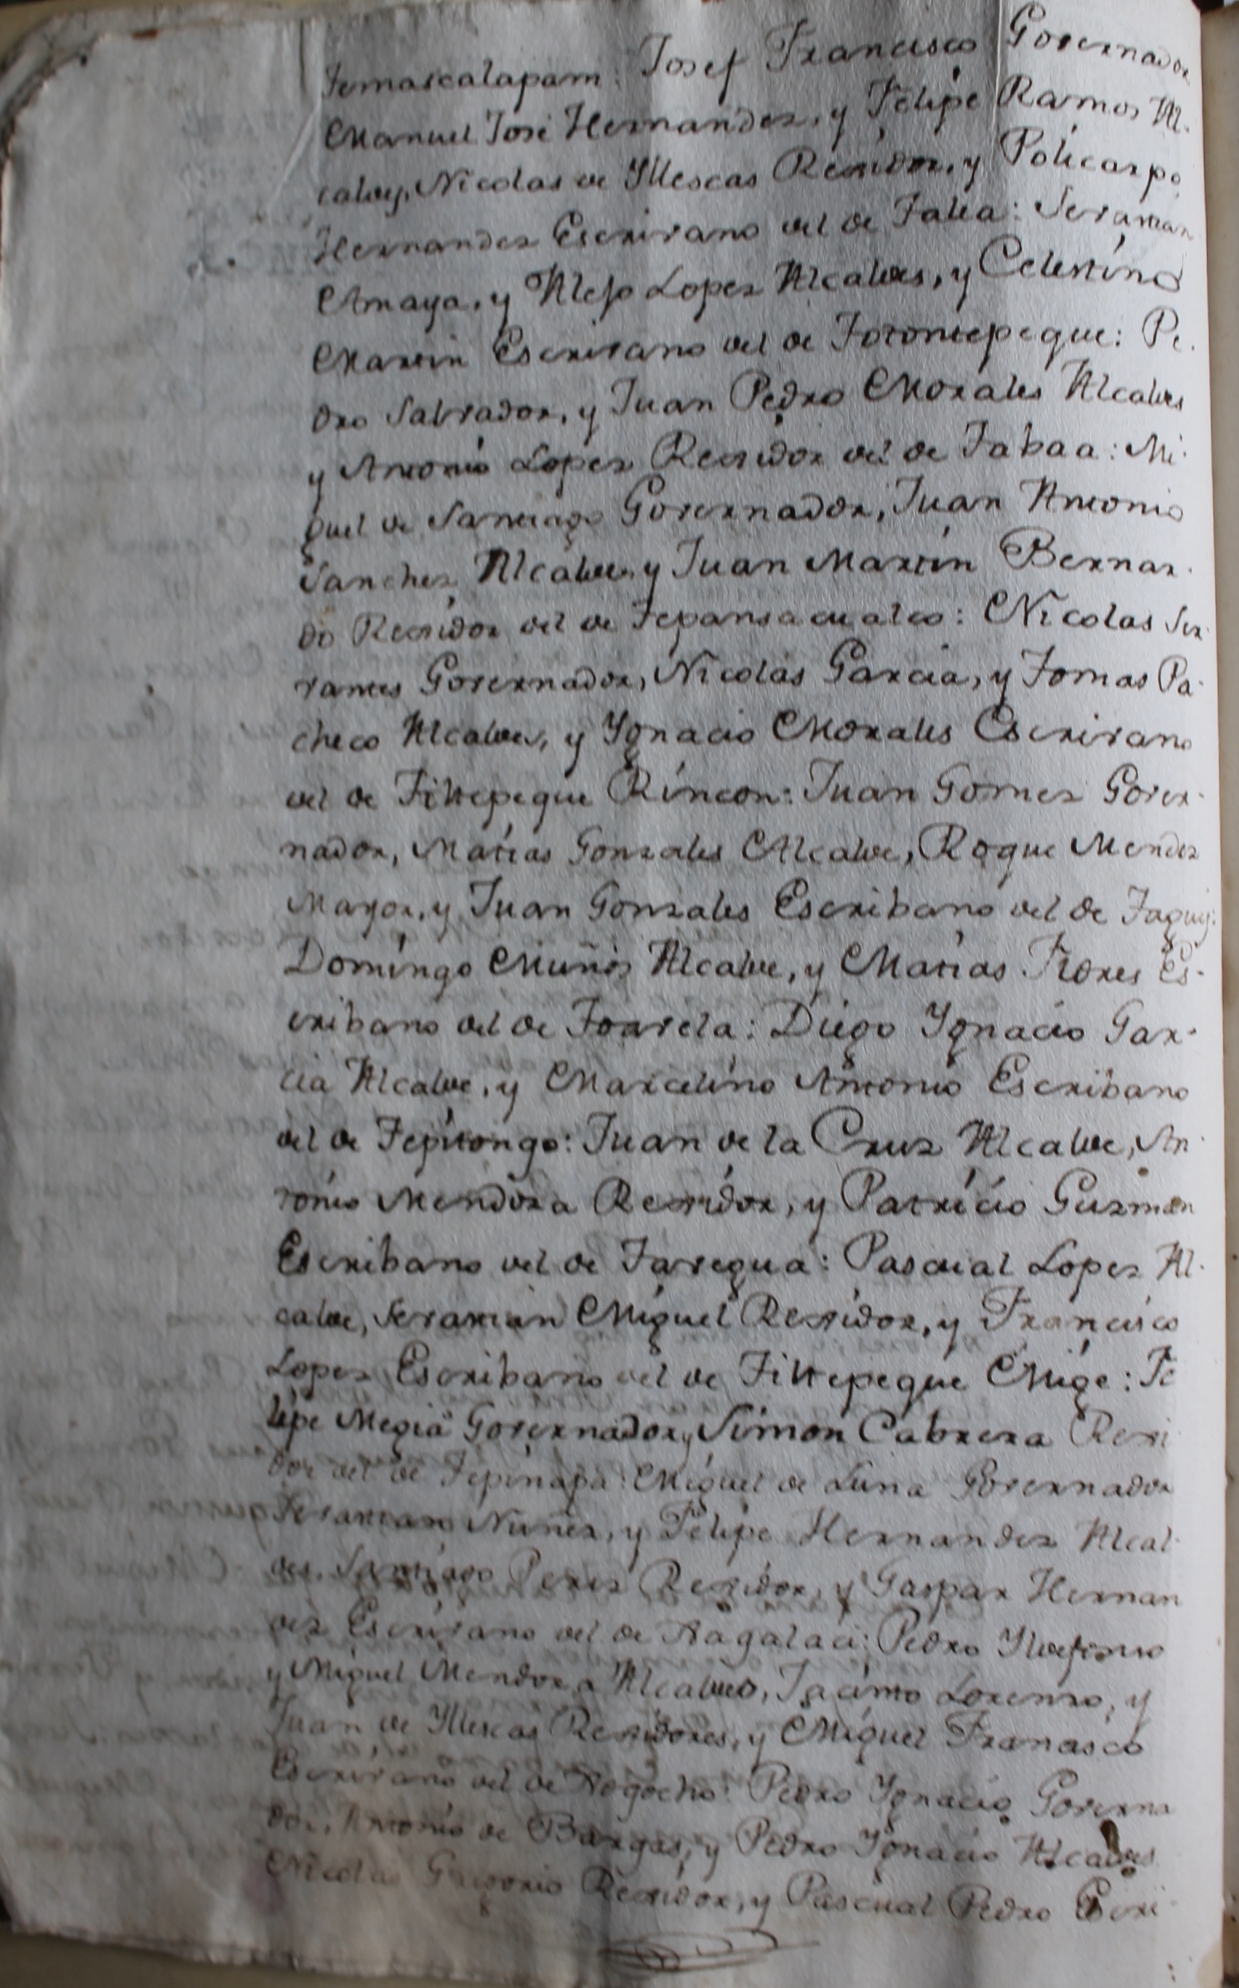 Temascalapam: Josef Francisco Governador
Manuel José Hernandez, y Felipe Ramos Al-
caldes, Nicolas de Yllescas Regidor, y Policarpo
Hernandez Escrivano del de Talea:
Amaya, y Alejo Lopez Alcaldes, y Celestino
Martin Escrivano del de Totontepeque: Pe-
dro Salvador, y Juan Pedro Morales Alcaldes
y Antonio Lopez Regidor del de Tabaa: Mi-
guel de Santiago Governador, Juan Antonio
Sanchez Alcalde, y Juan Martin Bernar-
do Regidor del de Tepansacualco: Nicolas Ser-
vantes Governador, Nicolas Garcia, y Tomas Pa-
checo Alcaldes, y Ygnacio Morales Escrivano
del de Tiltepeque Rincon: Juan Gomez Gover-
nador, Matias Gonzales Alcalde, Roque Mendez
Mayor, y Juan Gonzales Escribano del de Taguy:
Domingo Muños Alcalde, y Matias Flores Es-
cribano del de: Diego Ygnacio Gar-
cia Alcalde, y Marcelino Antonio Escribano
del de Tepitongo: Juan de la Cruz Alcalde, An-
tonio Mendoza Regidor, y Patricio Guzman
Escribano del de Tavegua: Pascual Lopez Al-
calde, Sevastian Miguel Regidor, y Francisco
Lopez Escribano del de Tiltepeque Mige: Fe
lipe Megia Governador y Simon Cabrera Regi
dor del de Tepinapa: Miguel de Luna Governador
Sevastian Nuñez, y Felipe Hernandez Alcal-
des, Santiago Perez Regidor, y Gaspar Hernan
dez Escrivano del de Yagalaci: Pedro Yldefonso
y Miguel Mendoza Alcaldes, Jacinto Lorenzo, y
Juan de Yllescas Regidores, y Miguel Francisco
Escrivano del de Yogocho: Pedro Ygnacio Governa
dor, Antonio de Bargas, y Pedro Ygnacio Alcaldes
Nicolas Gregorio Regidor, y Pascual Pedro Escri-